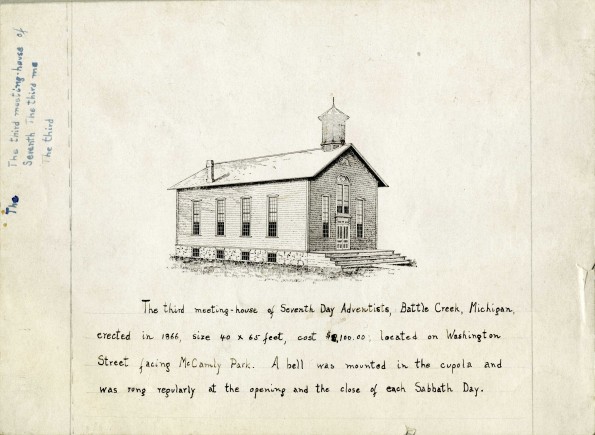 The third meeting-house of
Seventh The third me
The third
The
The third meeting-house of Seventh Day Adventists, Battle Creek, Michigan,
erected in 1866, size 40 x 65 feet, cost located on Washington
Street facing McCamly Park. A bell was mounted in the cupola and
was rung regularly at the opening and the close of each Sabbath Day.